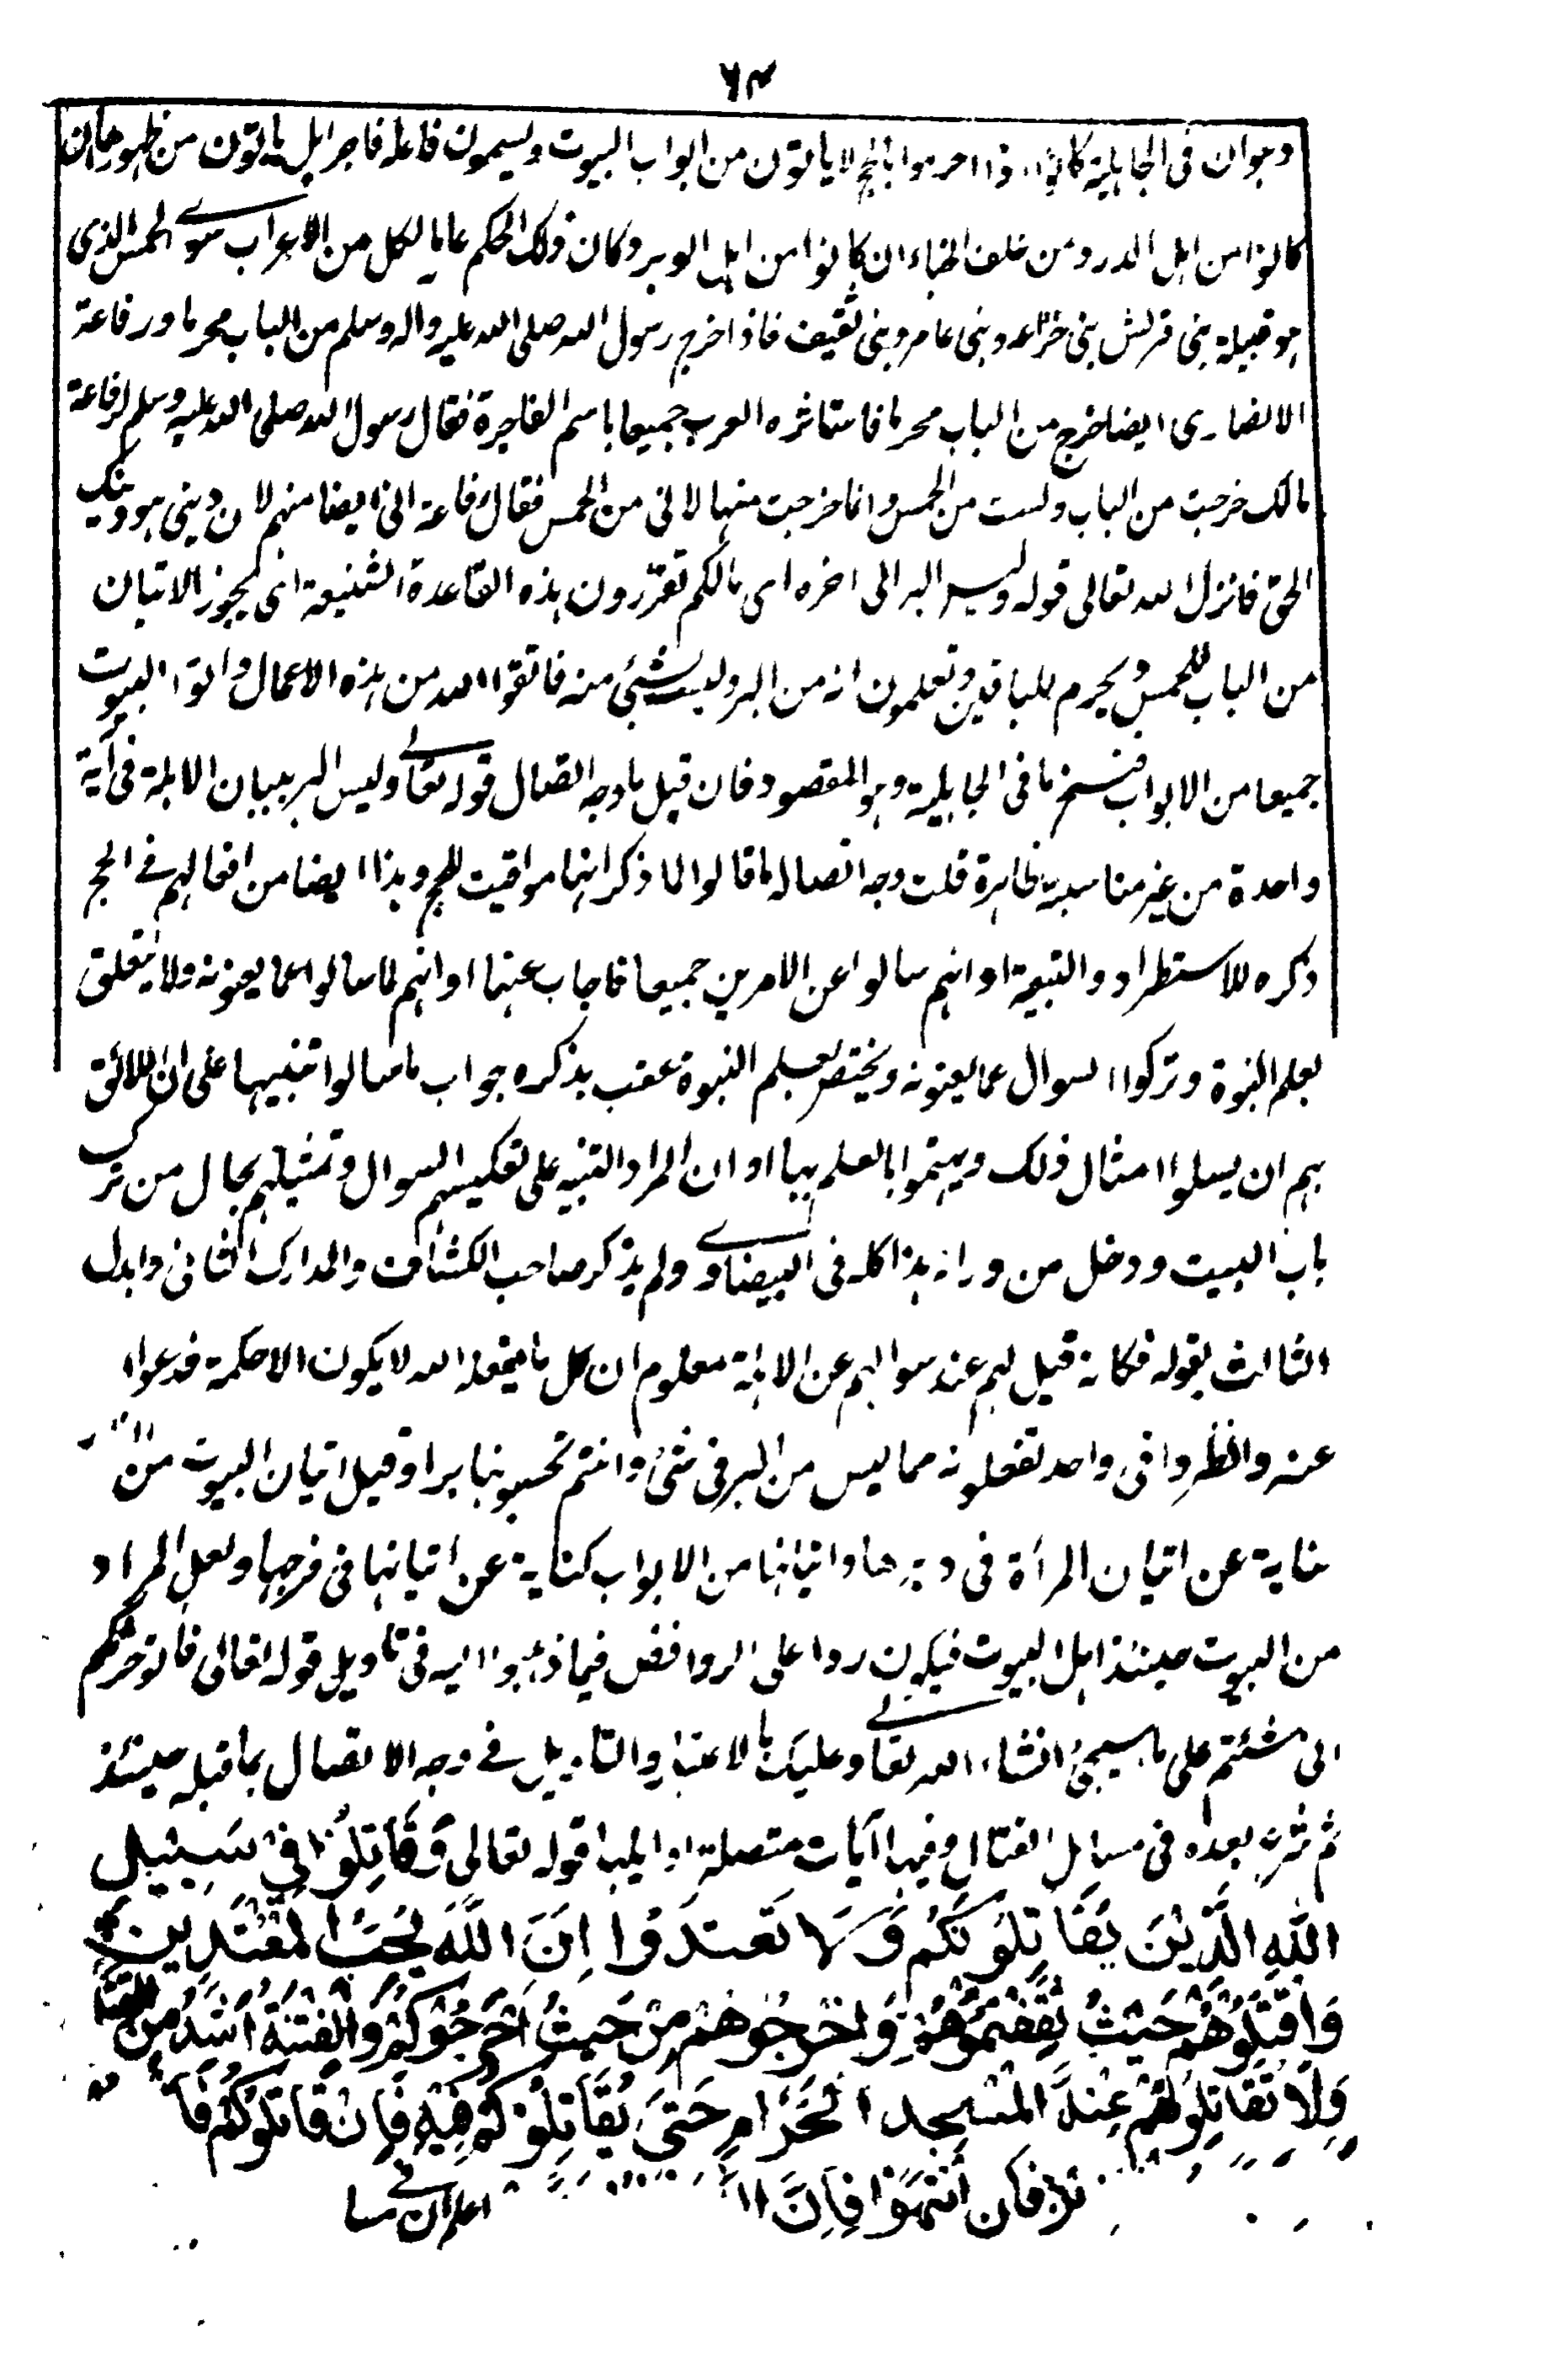 ٦٣
وهو ان فى الجاهلية كانوا اذا احرموا بالحج لا ياتون من ابواب البيوت ويسمون فاعله فاجرا بل ياتون من ظهورها ان
كانوا من اهل المدر ومن خلف الخباء ان كانوا من اهل الوبر وكان ذلك الحكم عاما لكل من الاعراب سوى الحمس الذى
هو قبيلة بنى قريش بنى خزاعه وبنى عامر وبنى ثقيف فاذا خرج رسول الله صلى الله عليه واله وسلم من الباب محرما ورفاعة
الانصارى ايضا خرج من الباب محرما فاستماثره العرب جميعا باسم الفاجرة فقال رسول الله صلى الله عليه وسلم لرفاعة
مالك خرجت من الباب ولست من الحمس وانما خرجت منها لانى من الحمس فقال رفاعة انى ايضا منهم لان دينى هو دينك
الحق فانزل الله تعالى قوله وليس البر الى اخره اى مالكم تقررون هذه القاعدة الشنيعة اى يجوز الاتيان
من الباب للحمس ويحرم للباقين وتعلمون انه من البر وليست بشئ منه فاتقوا الله من هذه الاعمال واتوا البيوت
جميعا من الابواب فنسخ ما فى الجاهلية وهو المقصود فان قيل ما وجه اتصال قوله تعالى وليس البر ببيان الاهلة فى آية
واحدة من غير مناسبة ظاهرة قلت وجه اتصاله ما قالوا لما ذكر انها مواقيت للحج وهذا ايضا من افعالهم فى الحج
ذكره للاستطراد والتبعية او انهم سالوا عن الامرين جميعا فاجاب عنها او انهم لما سالوا عما لا يعنونه ولا يتعلق
بعلم النبوة وتركوا السوال عما يعنونه ويختص بعلم النبوة عقب بذكره جواب ما سالوا تنبيها على ان اللائق
بهم ان يسلوا امثال ذلك ويهتموا بالعلم بها او ان المراد التنبيه على تعكيسهم السوال وتمثيلهم بحال من ترك
باب البيت ودخل من ورائه هذا كله فى البيضاوى ولم يذكر صاحب الكشاف والمدارك الثانى وابدل
الثالث بقوله فكانه قيل لهم عند سوالهم عن الاهلة معلوم ان كل ما يفعله الله لا يكون الا حكمة فدعوا
عنه وانظروا فى واحد تفعلونه مما ليس من البر فى شئ وانتم تحسبونها برا وقيل اتيان البيوت من
كناية عن اتيان المرأة فى دبرها واتيانها من الابواب كناية عن اتيانها فى فرجها ولعل المراد
من البيوت حينئذ اهل البيوت فيكون ردا على الروافض فيما ذهبوا اليه فى تاويل قوله تعالى فاتوا حرثكم
انى شئتم على ما سيجئ انشاء الله تعالى وعليك بالاعتبار والتاويل فى وجه الاتصال بما قبله حينئذ
ثم شرع بعده فى مسائل القتال وفيها آيات متصلة اوليها قوله تعالى وَقَاتِلُوْا فِىْ سَبِيْلِ
اللّٰهِ الَّذِيْنَ يُقَاتِلُوْنَكُمْ وَلَا تَعْتَدُوْا اِنَّ اللّٰهَ لَا يُحِبُّ الْمُعْتَدِيْنَ
وَاقْتُلُوْهُمْ حَيْثُ ثَقِفْتُمُوْهُمْ وَاَخْرِجُوْهُمْ مِّنْ حَيْثُ اَخْرَجُوْكُمْ وَالْفِتْنَةُ اَشَدُّ مِنَ الْقَتْلِ
وَلَا تُقَاتِلُوْهُمْ عِنْدَ الْمَسْجِدِ الْحَرَامِ حَتّٰى يُقَاتِلُوْكُمْ فِيْهِ فَاِنْ قَاتَلُوْكُمْ
فَاِنِ انْتَهَوْا فَاِنَّ اعلم ان